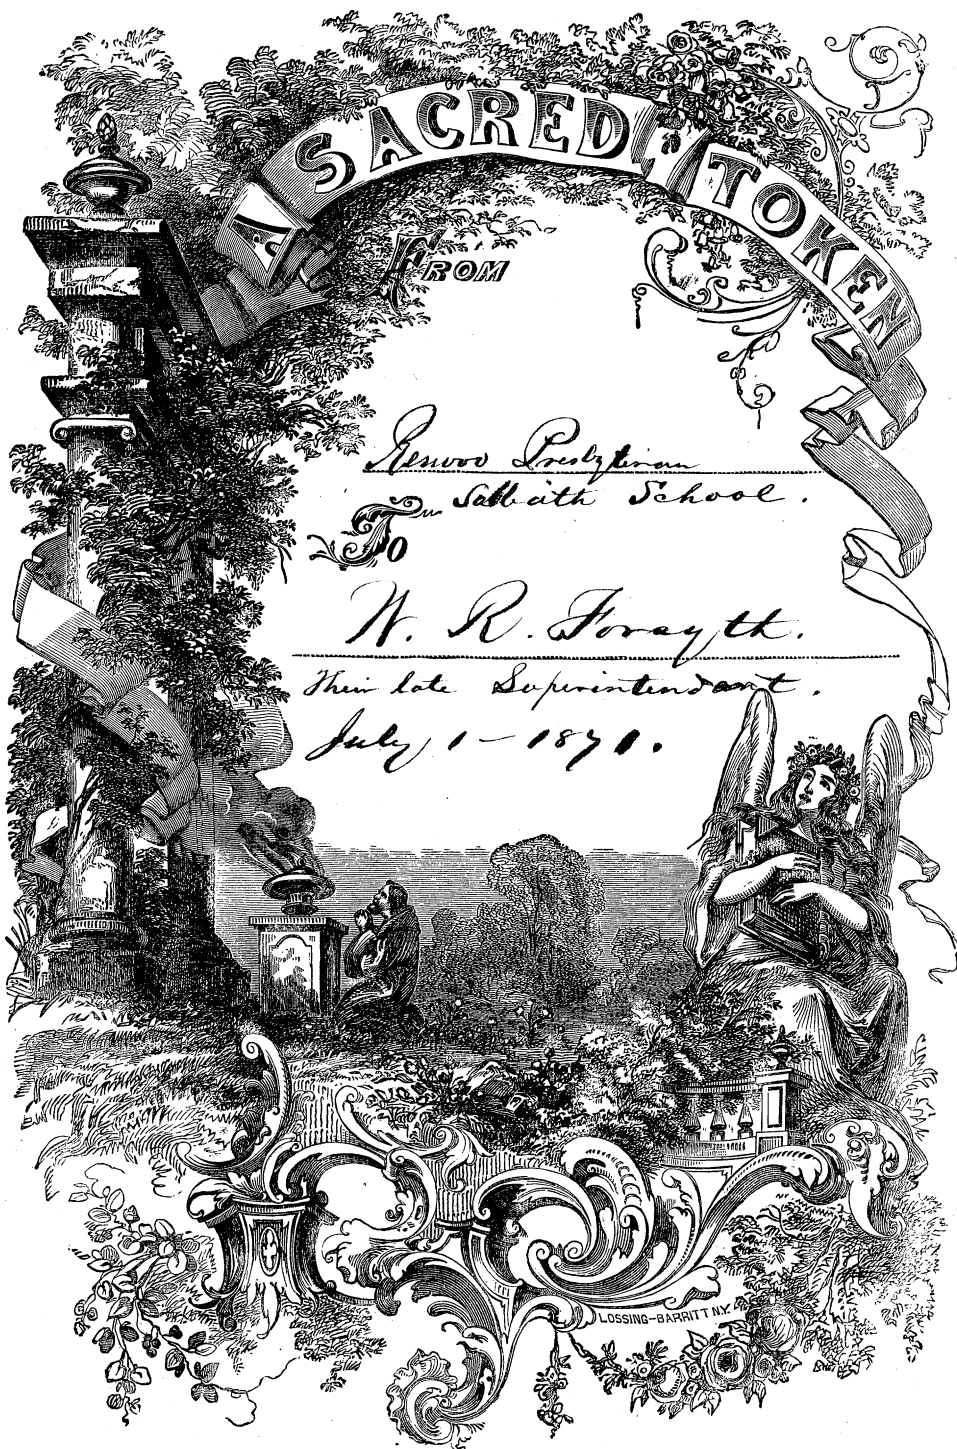 A SACRED TOKEN
FROM
Renwoo Presbyterian
Sabbath School.
To
W. R. Forsyth.
Their late Superintendant.
July 1 - 1871.
LOSSING-BARRITT N.Y.